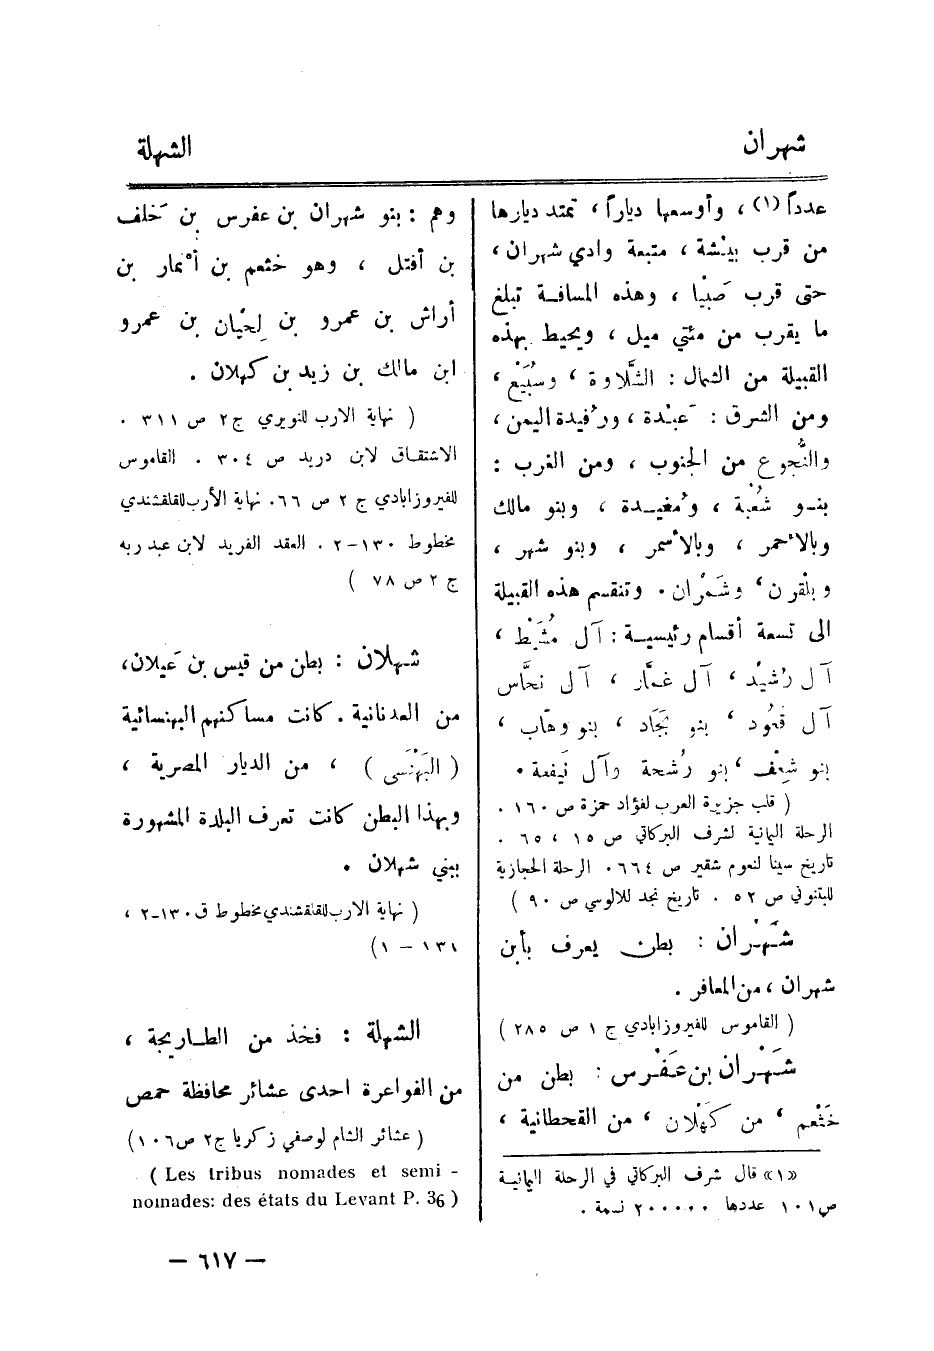 شهران
الشهلة
عدداً (١) ، وأوسعها دياراً ، تمتد ديارها
من قرب بيْشة ، متبعة وادي شهران ،
حتى قرب صَبْيا ، وهذه المسافة تبلغ
ما يقرب من مئتي ميل ، ويحيط بهذه
القبيلة من الشمال : الشَّلاوة ، وسُبَيْع ،
ومن الشرق : عَبْدة ، ورُفيدة اليمن ،
والنُّجوع من الجنوب ، ومن الغرب :
بنو شُعْبة ، ومُغيدة ، وبنو مالك
وبالأحمر ، وبالأسمر ، وبنو شهر ،
وبلْقرن ، وشَمْران . وتنقسم هذه القبيلة
الى تسعة أقسام رئيسية : آل مُشَيْط ،
آل رُشيْد ، آل غمَّار ، آل نحَّاس
آل قنُود ، بنو بَجَاد ، بنو وهّاب ،
بنو شعِْف ، بنو رُشحة وآل نَيفعة .
( قلب جزيرة العرب لفؤاد حمزة ص ١٦٠ .
الرحلة اليمانية لشرف البركاتي ص ١٥ ، ٦٥ .
تاريخ سينا لنعوم شقير ص ٦٦٤ . الرحلة الحجازية
للبتنوني ص ٥٢ . تاريخ نجد للالوسي ص ٩٠ )
شَهْران : بطن يعرف بأبن
شهران ، من المعافر .
( القاموس للفيروزابادي ج ١ ص ٢٨٥ )
شَهْران بن عَفْرس : بطن من
خَثْعم ، من كَهْلان ، من القحطانية ،
«١» قال شرف البركاتي في الرحلة اليمانية
ص ١٠١ عددها ٢٠٠٠٠٠ نسمة .
وهم : بنو شهران بن عفرس بن خَلف
بن أفتل ، وهو خثعم بن أنمار بن
أراش بن عمرو بن لِحْيان بن عمرو
ابن مالك بن زيد بن كهلان .
( نهاية الارب للنويري ج ٢ ص ٣١١ .
الاشتقاق لابن دريد ص ٣٠٤ . القاموس
للفيروزابادي ج ٢ ص ٦٦ . نهاية الأرب للقلقشندي
مخطوط ١٣٠–٢ . العقد الفريد لابن عبد ربه
ج ٢ ص ٧٨ )
شهلان : بطن من قيس بن عَيلان،
من العدنانية . كانت مساكنهم البهنسائية
( البَهْنَسى ) ، من الديار المصرية ،
وبهذا البطن كانت تعرف البلدة المشهورة
ببني شهلان .
( نهاية الارب للقلقشندي مخطوط ق ١٣٠–٢ ،
١٣١ – ١)
الشهلة : فخذ من الطاريجة ،
من الفواعرة احدى عشائر محافظة حمص
( عشائر الشام لوصفي زكريا ج٢ ص١٠٦)
( Les tribus nomades et semi -
nomades: des états du Levant P. 36 )
— ٦١٧ —